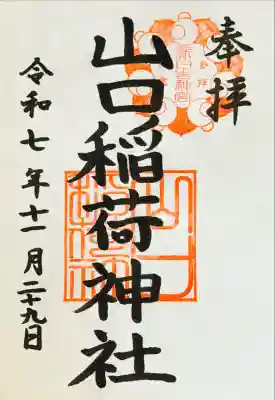 奉拝
山口稲荷神社
令和七年十一月二十九日